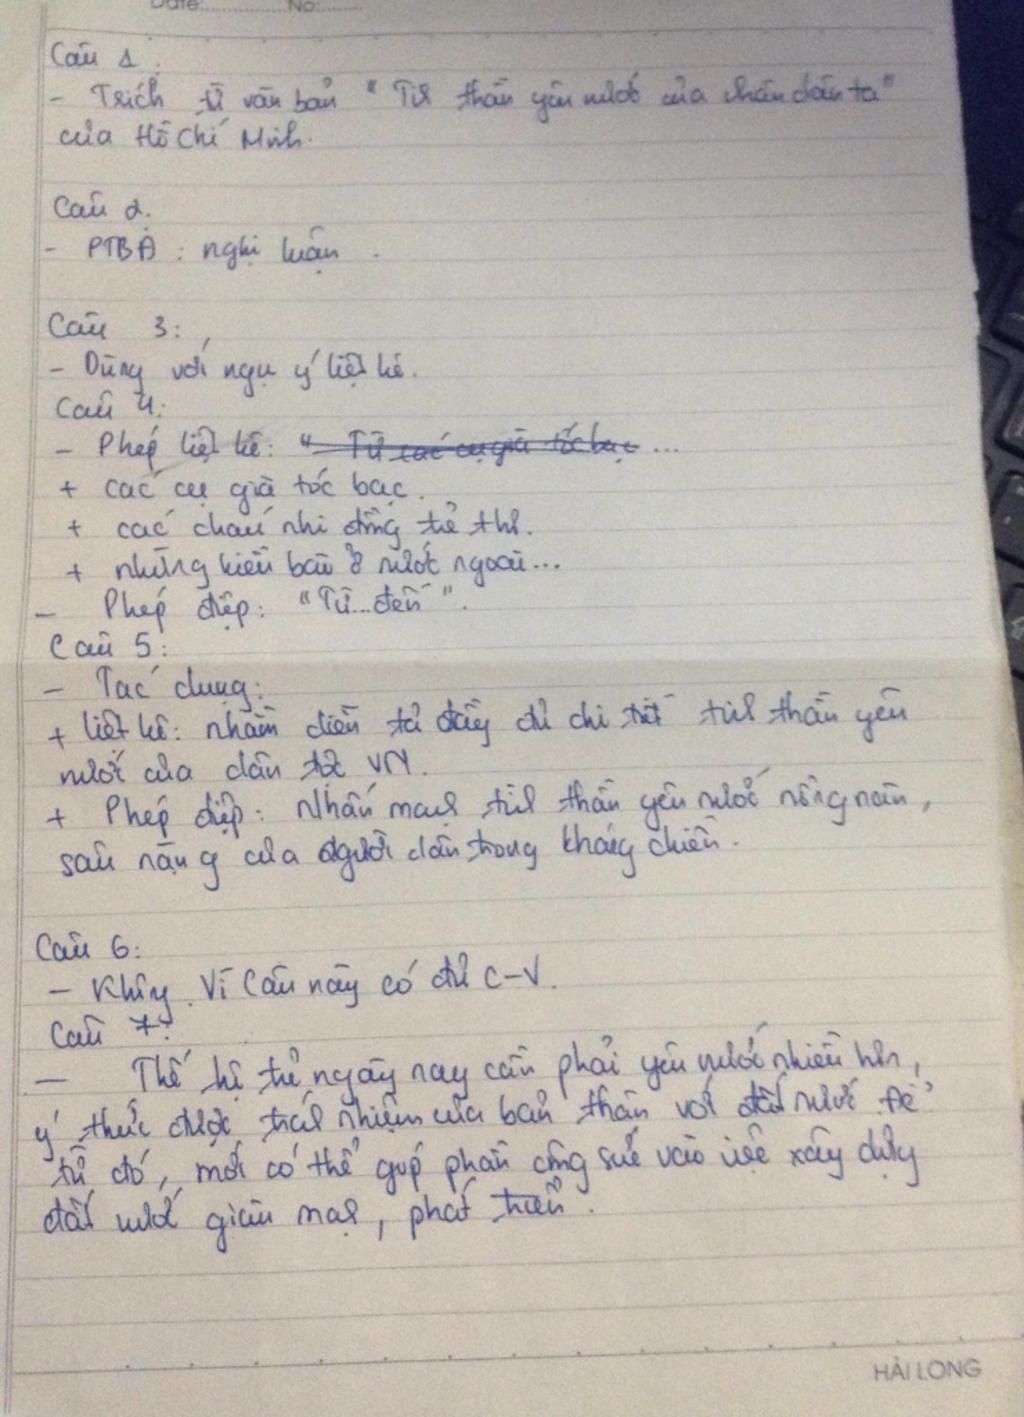 Date: No:
Câu 1:
- Trích từ văn bản "Tinh thần yêu nước của nhân dân ta"
của Hồ Chí Minh.
Câu 2.
- PTBĐ: nghị luận.
Câu 3:
- Dùng với ngụ ý liệt kê.
Câu 4:
- Phép liệt kê: " Từ các cụ già tóc bạc ...
+ các cụ già tóc bạc.
+ các cháu nhi đồng trẻ thơ.
+ những kiều bào ở nước ngoài...
- Phép điệp: "Từ...đến".
Câu 5:
- Tác dụng:
+ liệt kê: nhằm diễn tả đầy đủ chi tiết tinh thần yêu
nước của dân tộc VN.
+ Phép điệp: Nhấn mạnh tinh thần yêu nước nồng nàn,
sâu nặng của người dân trong kháng chiến.
Câu 6:
- Không. Vì Câu này có đủ C-V.
Câu 7:
- Thế hệ trẻ ngày nay cần phải yêu nước nhiều hơn,
ý thức được trách nhiệm của bản thân với đất nước. Để
từ đó, mới có thể góp phần công sức vào việc xây dựng
đất nước giàu mạnh, phát triển.
HẢI LONG